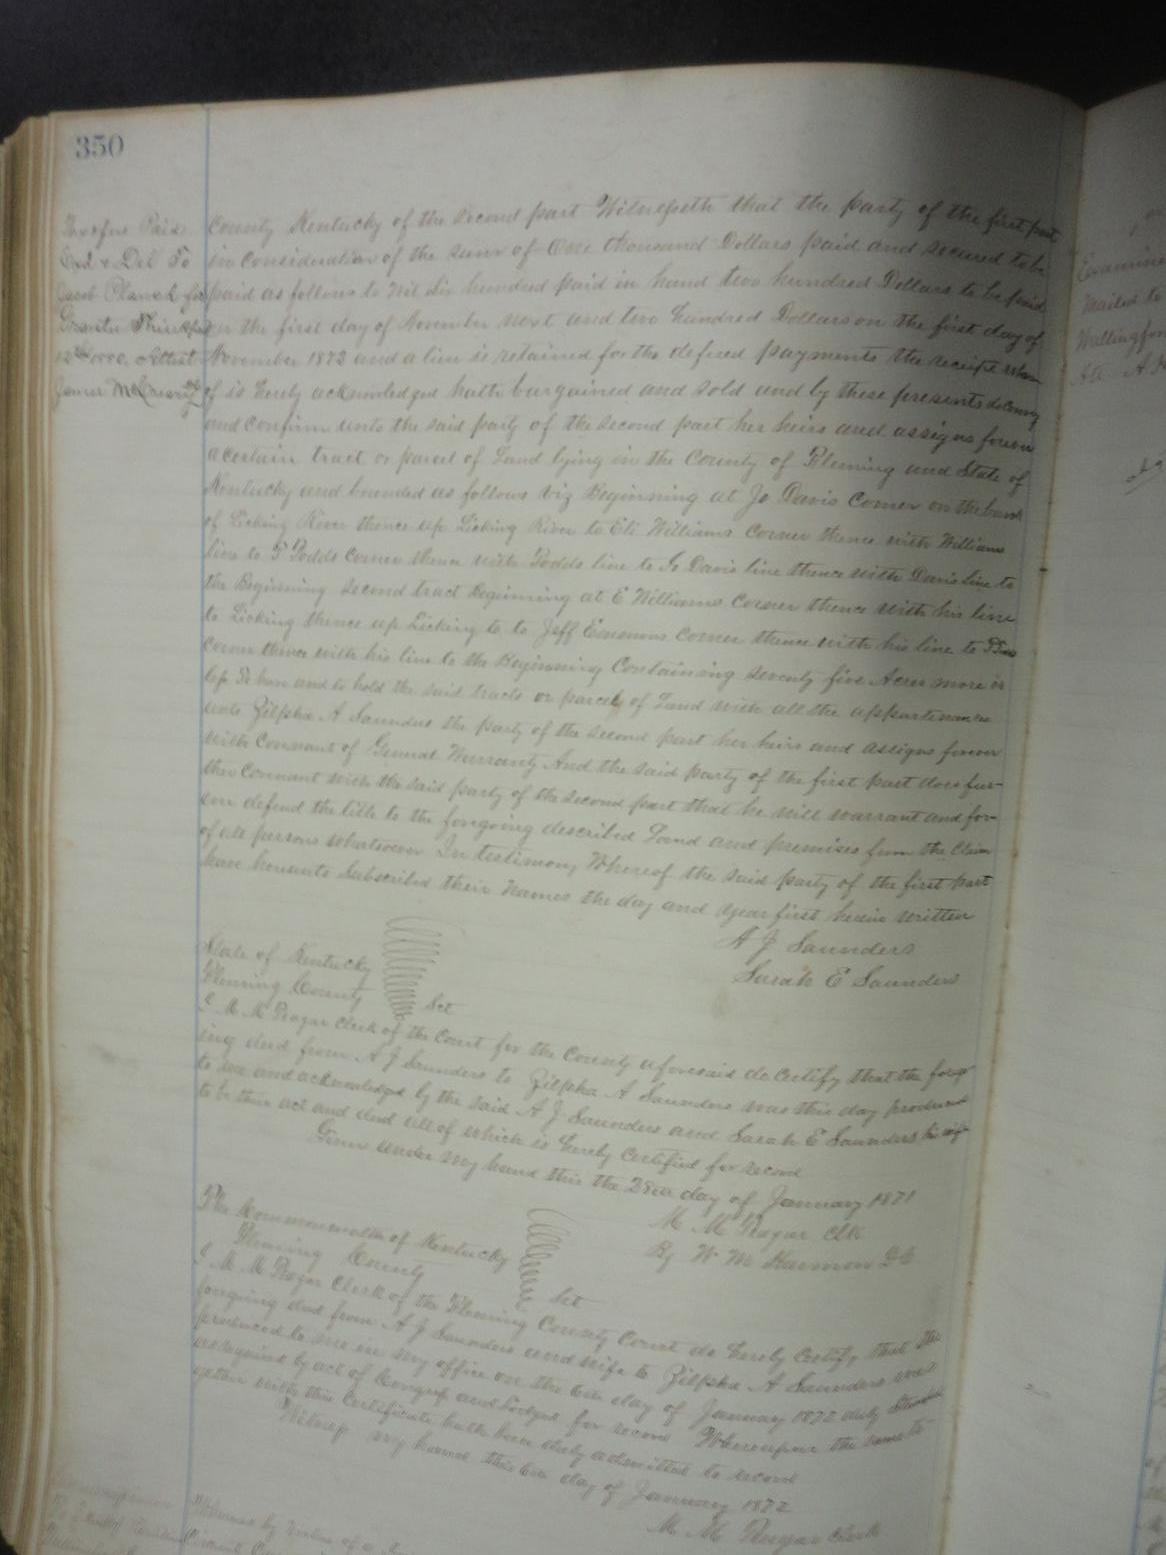 350
County Kentucky of the second part Witnesseth that the party of the first part
in consideration of the sum of One thousand Dollars paid and secured to be
paid as follows to Wit Six hundred paid in hand two hundred Dollars to be paid
on the first day of November next and two hundred Dollars on the first day of
November 1873 and a lien is retained for the defered payments the receipt where
of is hereby acknowledged hath bargained and sold and by these presents do convey
and confirm unto the said party of the second part her heirs and assigns forever
a certain tract or parcel of Land lying in the County of Fleming and State of
Kentucky and bounded as follows viz Beginning at Jo Davis Corner on the bank
of Licking River thence up Licking River to Eli Williams Corner thence with Williams
line to T Dodds corner thence with Dodds line to Jo Davis line thence with Davis line to
the Beginning Second tract Beginning at E Williams corner thence with his line
to Licking thence up Licking to to Jeff Emmons corner thence with his line to
corner thence with his line to the Beginning Containing seventy five Acres more or
less To have and to hold the said tracts or parcels of Land with all the appurtenances
unto Zilpha A Saunders the party of the second part her heirs and assigns forever
with Covenant of General Warranty And the said party of the first part does fur-
ther covenant with the said party of the second part that he will warrant and for-
ever defend the title to the foregoing described Land and premises from the Claim
of all persons whatsoever In testimony Whereof the said party of the first part
have hereunto Subscribed their names the day and year first herein written
A J Saunders
Sarah E Saunders
State of Kentucky
Fleming County Sct
I M M Teager Clerk of the Court for the County aforesaid do certify that the forego-
ing deed from A J Saunders to Zilpha A Saunders was this day produced
to me and acknowledged by the said A J Saunders and Sarah E Saunders his wife
to be their act and deed all of which is hereby certified for record
Given under my hand this the 28th day of January 1871
M M Teager Clk
By W M
The Commonwealth of Kentucky
Fleming County Sct
I M M Teager Clerk of the Fleming County Court do hereby certify that the
foregoing deed from A J Saunders and wife to Zilpha A Saunders was
produced to me in my office on the day of January 1872 duly Stamped
as required by act of Congress and lodged for record Whereupon the same to-
gether with this Certificate hath been duly admitted to record
Witness my hand this day of January 1872
M M Teager Clerk
Paid
Exd & Del To
Jacob Planck for
Attest
James
Examined
mailed to